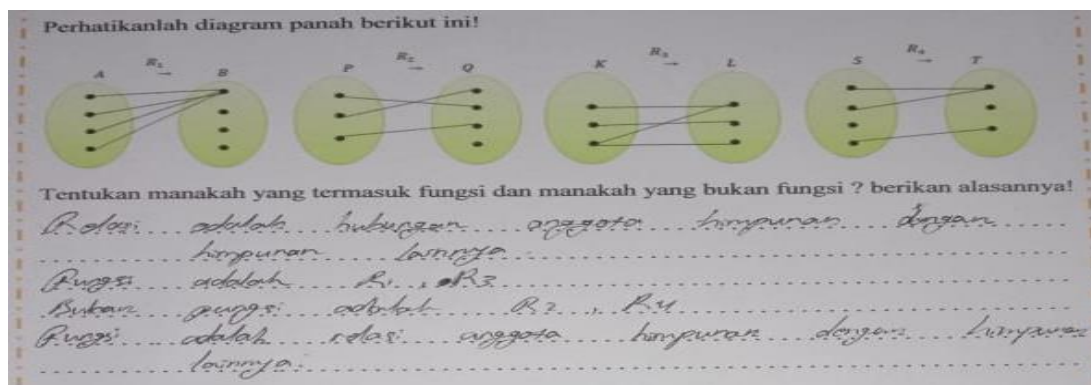 Perhatikanlah diagram panah berikut ini!
A R₁ → B P R₂ → Q K R₃ → L S R₄ → T
Tentukan manakah yang termasuk fungsi dan manakah yang bukan fungsi ? berikan alasannya!
Relasi adalah hubungan anggota himpunan dengan
himpunan lainnya
Fungsi adalah R1, R3
Bukan fungsi adalah R2, R4
Fungsi adalah relasi anggota himpunan dengan himpunan
lainnya.